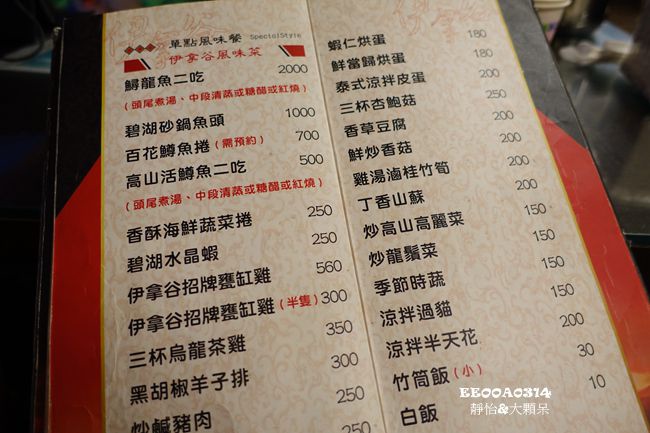 單點風味餐 SpecialStyle
伊拿谷風味菜
鱘龍魚二吃 2000
(頭尾煮湯、中段清蒸或糖醋或紅燒)
碧湖砂鍋魚頭 1000
百花鱒魚捲(需預約) 700
高山活鱒魚二吃 500
(頭尾煮湯、中段清蒸或糖醋或紅燒)
香酥海鮮蔬菜捲 250
碧湖水晶蝦 250
伊拿谷招牌甕缸雞 560
伊拿谷招牌甕缸雞(半隻) 300
三杯烏龍茶雞 350
黑胡椒羊子排 300
炒鹹豬肉 250
蝦仁烘蛋 180
鮮當歸烘蛋 180
泰式涼拌皮蛋 200
三杯杏鮑菇 200
香草豆腐 200
鮮炒香菇 200
雞湯滷桂竹筍 200
丁香山蘇 200
炒高山高麗菜 200
炒龍鬚菜 150
季節時蔬 150
涼拌過貓 150
涼拌半天花 200
竹筒飯(小) 30
白飯 10
EE00A0314
靜怡&大顆呆